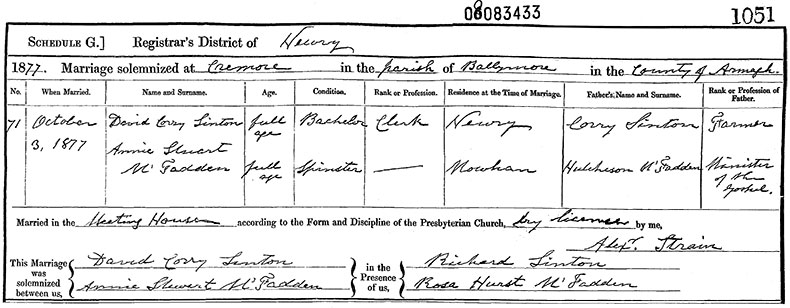 08083433
1051
SCHEDULE G.] Registrar's District of Newry
1877. Marriage solemnized at Cremore in the parish of Ballymore in the County of Armagh.
No. When Married. Name and Surname. Age. Condition. Rank or Profession. Residence at the Time of Marriage. Father's Name and Surname. Rank or Profession of Father.
71 October 3, 1877 David Corry Sinton full age Bachelor Clerk Newry Corry Sinton Farmer
Annie Stuart McFadden full age Spinster — Mowhan Hutcheson McFadden Minister of the Gospel.
Married in the Meeting House according to the Form and Discipline of the Presbyterian Church, by license by me,
Alexr. Strain
This Marriage was solemnized between us, { David Corry Sinton } in the Presence of us, { Richard Sinton
Annie Stewart McFadden Rosa Hurst McFadden